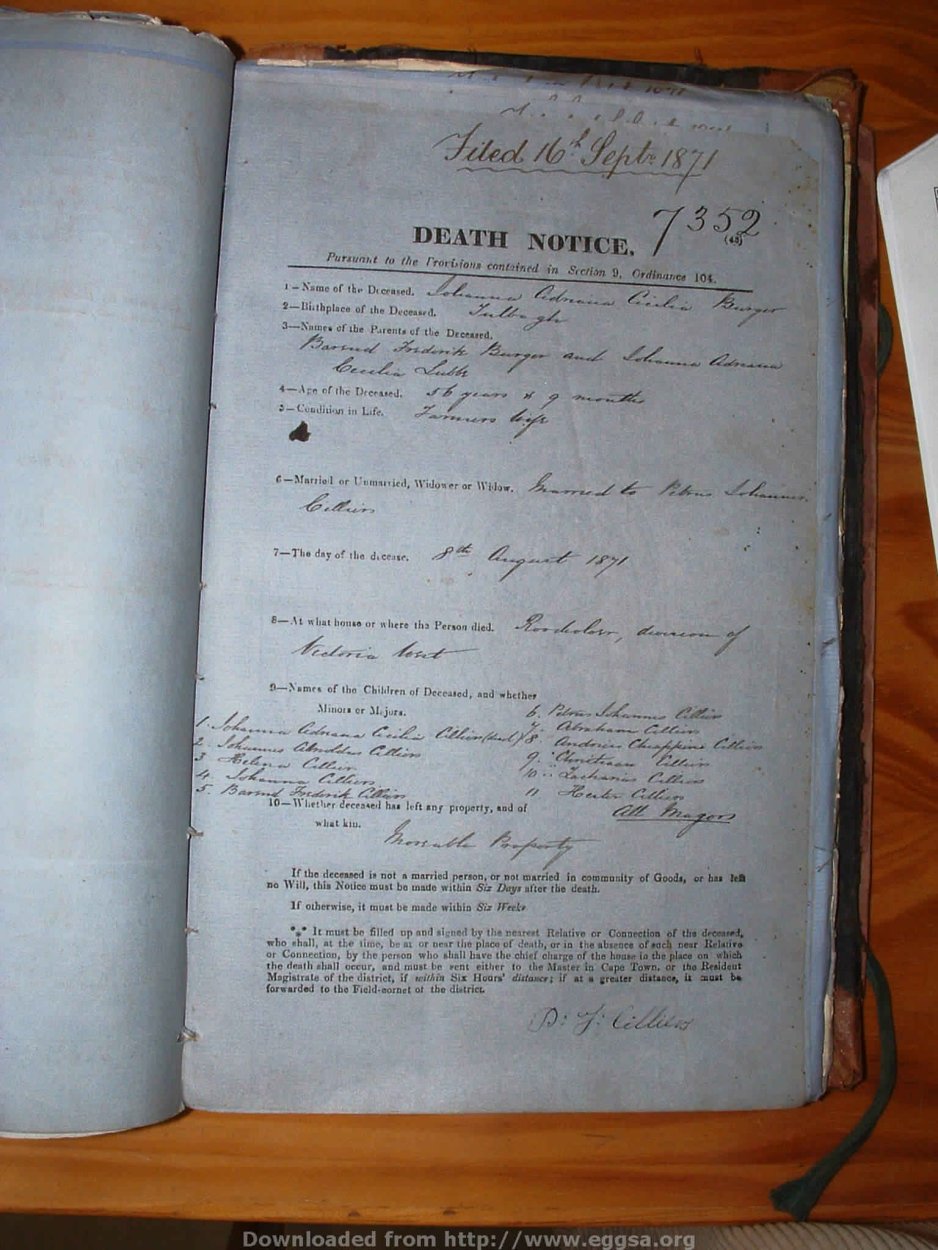 Filed 16th Septr 1871
7352
(43)
DEATH NOTICE,
Pursuant to the Provisions contained in Section 9, Ordinance 104.
1—Name of the Deceased. Johanna Adriana Cecilia Burger
2—Birthplace of the Deceased. Tulbagh
3—Names of the Parents of the Deceased.
Barend Frederik Burger and Johanna Adriana
Cecilia Lubbe
4—Age of the Deceased. 56 years & 9 months
5—Condition in Life. Farmers Wife
6—Married or Unmarried, Widower or Widow. Married to Petrus Johannes
Cilliers
7—The day of the decease. 8th August 1871
8—At what house or where the Person died. division of
Victoria West
9—Names of the Children of Deceased, and whether
Minors or Majors.
1. Johanna Adriana Cecilia Cilliers (dead)
2. Johannes Arnoldus Cilliers
3 Helena Cilliers
4. Johanna Cilliers
5. Barend Frederik Cilliers
6. Petrus Johannes Cilliers
7. Abraham Cilliers
8 Andries Cilliers
9. Christiaan Cilliers
10 Zacharias Cilliers
11 Hester Cilliers
All Magors
10—Whether deceased has left any property, and of
what kin.
Moveable Property
If the deceased is not a married person, or not married in community of Goods, or has left
no Will, this Notice must be made within Six Days after the death.
If otherwise, it must be made within Six Weeks
*** It must be filled up and signed by the nearest Relative or Connection of the deceased,
who shall, at the time, be at or near the place of death, or in the absence of such near Relative
or Connection, by the person who shall have the chief charge of the house in the place on which
the death shall occur, and must be sent either to the Master in Cape Town, or the Resident
Magistrate of the district, if within Six Hours' distance; if at a greater distance, it must be
forwarded to the Field-cornet of the district.
P: J: Cilliers
Downloaded from http://www.eggsa.org